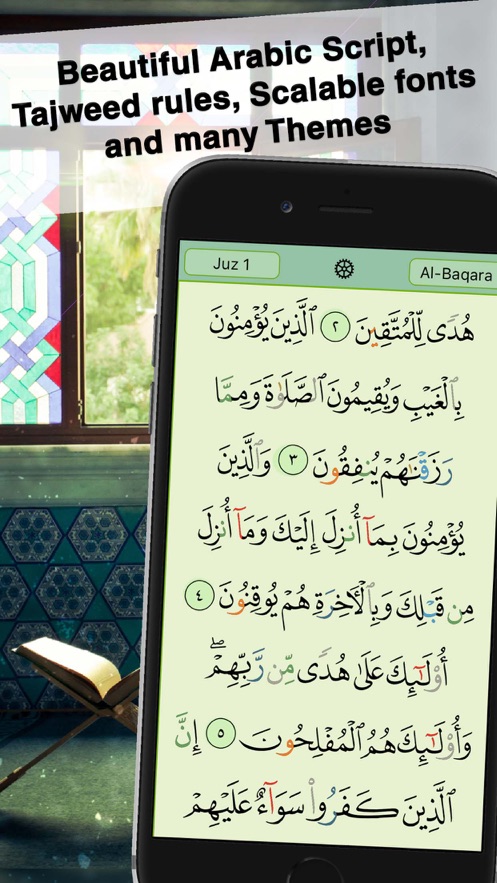 Beautiful Arabic Script,
Tajweed rules, Scalable fonts
and many Themes
Juz 1
Al-Baqara
هُدًى لِّلْمُتَّقِينَ ٢ ٱلَّذِينَ يُؤْمِنُونَ
بِٱلْغَيْبِ وَيُقِيمُونَ ٱلصَّلَوٰةَ وَمِمَّا
رَزَقْنَـٰهُمْ يُنفِقُونَ ٣ وَٱلَّذِينَ
يُؤْمِنُونَ بِمَآ أُنزِلَ إِلَيْكَ وَمَآ أُنزِلَ
مِن قَبْلِكَ وَبِٱلْأَخِرَةِ هُمْ يُوقِنُونَ ٤
أُو۟لَـٰٓئِكَ عَلَىٰ هُدًى مِّن رَّبِّهِمْ ۖ
وَأُو۟لَـٰٓئِكَ هُمُ ٱلْمُفْلِحُونَ ٥ إِنَّ
ٱلَّذِينَ كَفَرُوا۟ سَوَآءٌ عَلَيْهِمْ